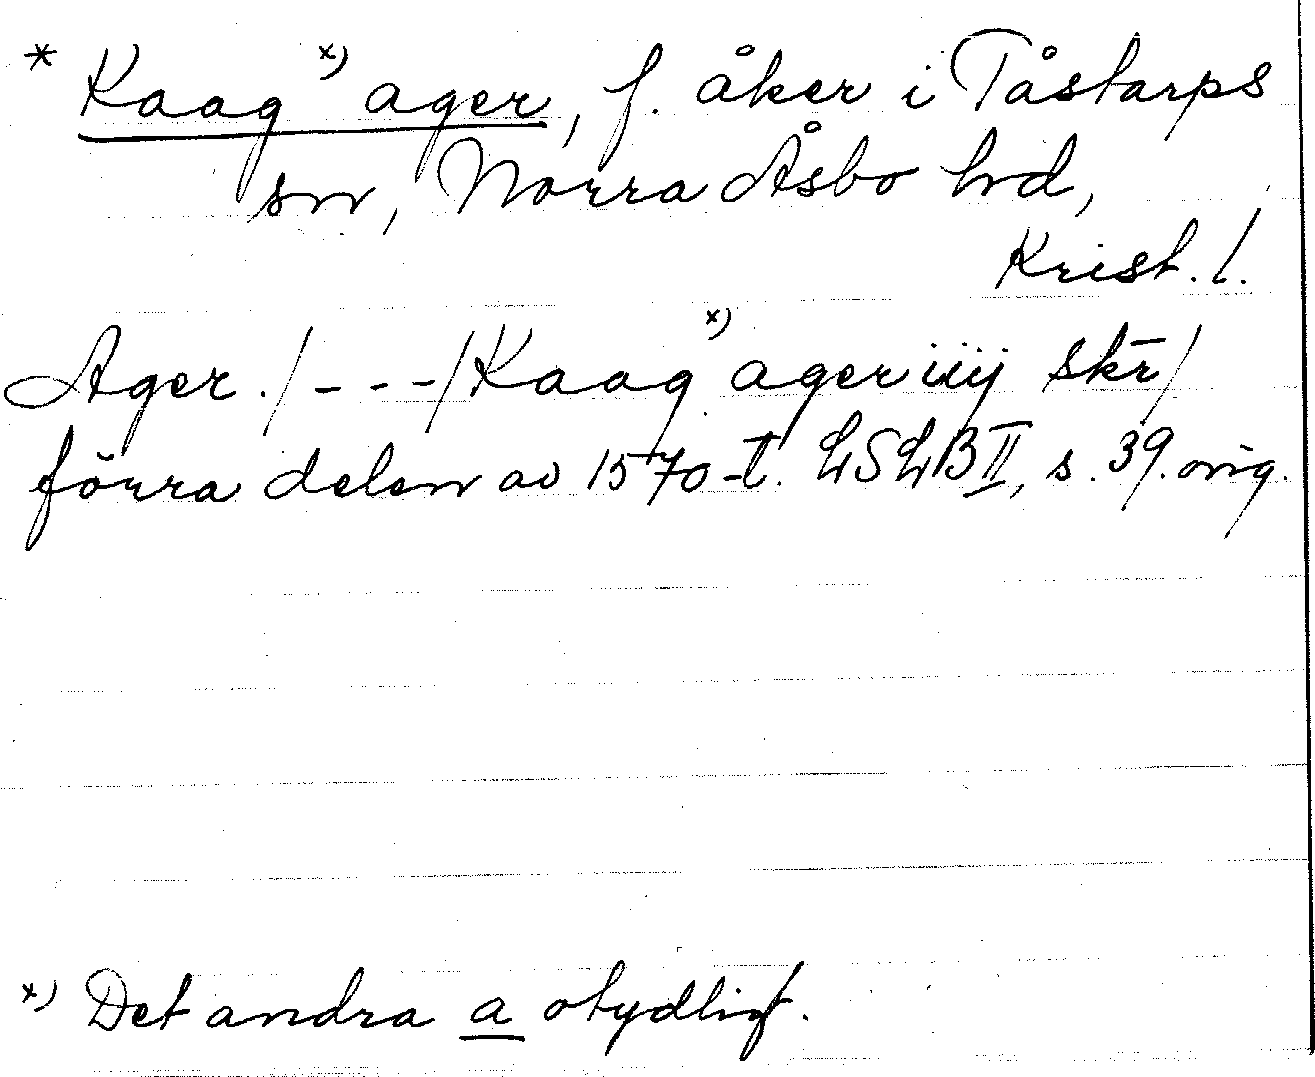 * Kaag x) ager, f. åker i Tåstarps
sn, Norra Åsbo hd,
Krist. l.
Ager. /---/ Kaag x) ager iiij skr̄/
förra delen av 1570-t. LSLB II, s. 39. orig.
x) Det andra a otydligt.